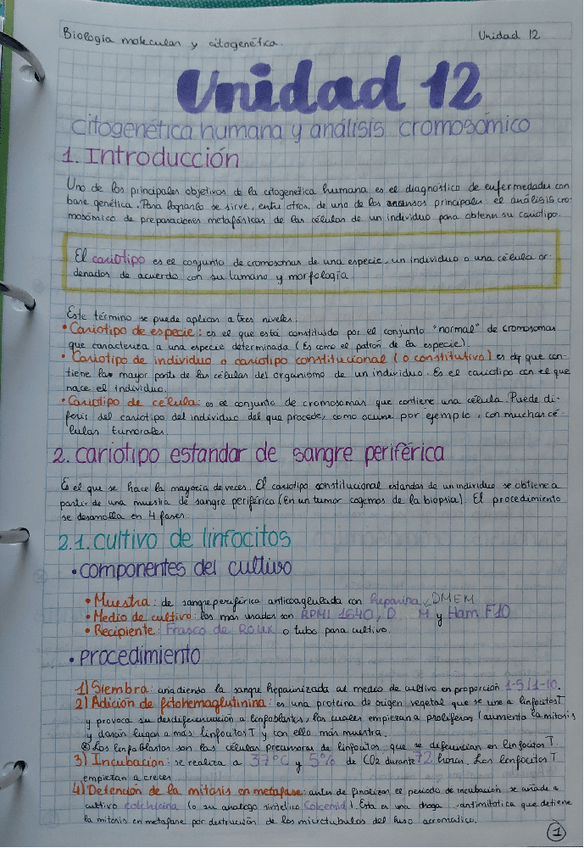 Biología molecular y citogenética.
Unidad 12
Unidad 12
citogenética humana y análisis cromosómico
1. Introducción
Uno de los principales objetivos de la citogenética humana es el diagnóstico de enfermedades con
base genética. Para lograrlo se sirve, entre otros, de uno de los recursos principales el análisis cro-
mosómico de preparaciones metafásicas de las células de un individuo para obtener su cariotipo.
El cariotipo es el conjunto de cromosomas de una especie, un individuo o una célula or-
denados de acuerdo con su tamaño y morfología.
Este término se puede aplicar a tres niveles:
• Cariotipo de especie: es el que está constituido por el conjunto "normal" de cromosomas
que caracteriza a una especie determinada (Es como el patrón de la especie).
• Cariotipo de individuo o cariotipo constitucional (o constitutivo) es el que con-
tiene la mayor parte de las células del organismo de un individuo. Es el cariotipo con el que
nace el individuo.
• Cariotipo de célula: es el conjunto de cromosomas que contiene una célula. Puede di-
ferir del cariotipo del individuo del que procede, como ocurre por ejemplo, con muchas cé-
lulas tumorales.
2. cariotipo estandar de sangre periférica
Es el que se hace la mayoría de veces. El cariotipo constitucional estandar de un individuo se obtiene a
partir de una muestra de sangre periférica (En un tumor cogemos de la biopsia). El procedimiento
se desarrolla en 4 fases
2.1. cultivo de linfocitos
• componentes del cultivo
• Muestra: de sangre periférica anticoagulada con heparina
DMEM
• Medio de cultivo: los más usados son RPMI 1640, D M y Ham F10
• Recipiente: Frasco de Roux o tubo para cultivo.
• Procedimiento
1) Siembra: añadiendo la sangre heparinizada al medio de cultivo en proporción 1-5/1-10.
2) Adición de fitohemaglutinina: es una proteína de origen vegetal que se une a linfocitos T
y provoca su desdiferenciación a linfoblastos, los cuales empiezan a proliferar (aumenta la mitosis
y darán lugar a más linfocitos T y con ello más muestra.
Los linfoblastos son las células precursoras de linfocitos que se diferencian en linfocitos T
3) Incubación: se realiza a 37°C y 5% de CO2 durante 72 horas. Los linfocitos T
empiezan a crecer
4) Detención de la mitosis en metafase: antes de finalizar el periodo de incubación se añade a
cultivo colchicina (o su análogo sintético Colcemid). Esta es una droga antimitótica que detiene
la mitosis en metafase por destrucción de los microtúbulos del huso acromático.
1